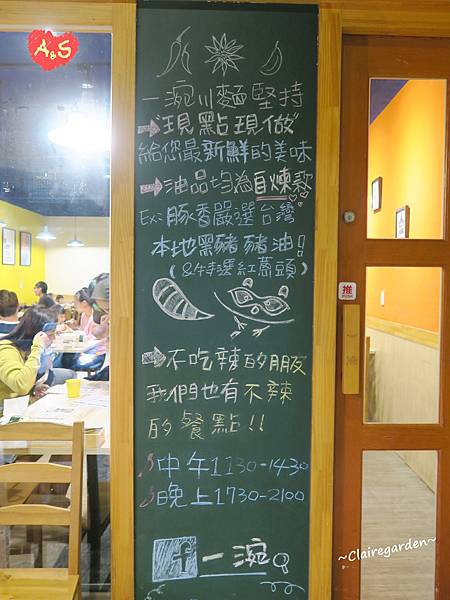 A&S
一涴川麵堅持
"現點現做"
給您最新鮮的美味
油品均為自煉款
Ex: 豚香嚴選台灣
本地黑豬豬油!
(&特選紅蔥頭)
不吃辣的朋友
我們也有不辣
的餐點!!
中午1130-1430
晚上1730-2100
f一涴
推
PUSH
~Clairegarden~